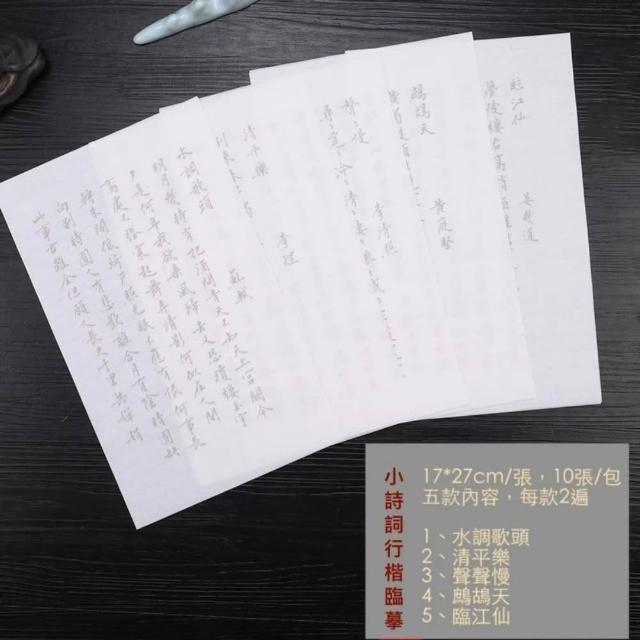 臨江仙
晏幾道
夢後樓臺高鎖酒醒
鷓鴣天
黃庭堅
黃菊枝頭
李清照
尋〻覓〻冷〻清〻淒〻慘〻戚〻
清平樂
李煜
別來春半
水調歌頭
蘇軾
明月幾時有把酒問青天不知天上宮闕今
夕是何年我欲乘風歸去又恐瓊樓玉宇
高處不勝寒起舞弄清影何似在人間
轉朱閣低綺戶照無眠不應有恨何事長
向別時圓人有悲歡離合月有陰晴圓缺
此事古難全但願人長久千里共嬋娟
小詩詞行楷臨摹
17*27cm/張，10張/包
五款內容，每款2遍
1、水調歌頭
2、清平樂
3、聲聲慢
4、鷓鴣天
5、臨江仙